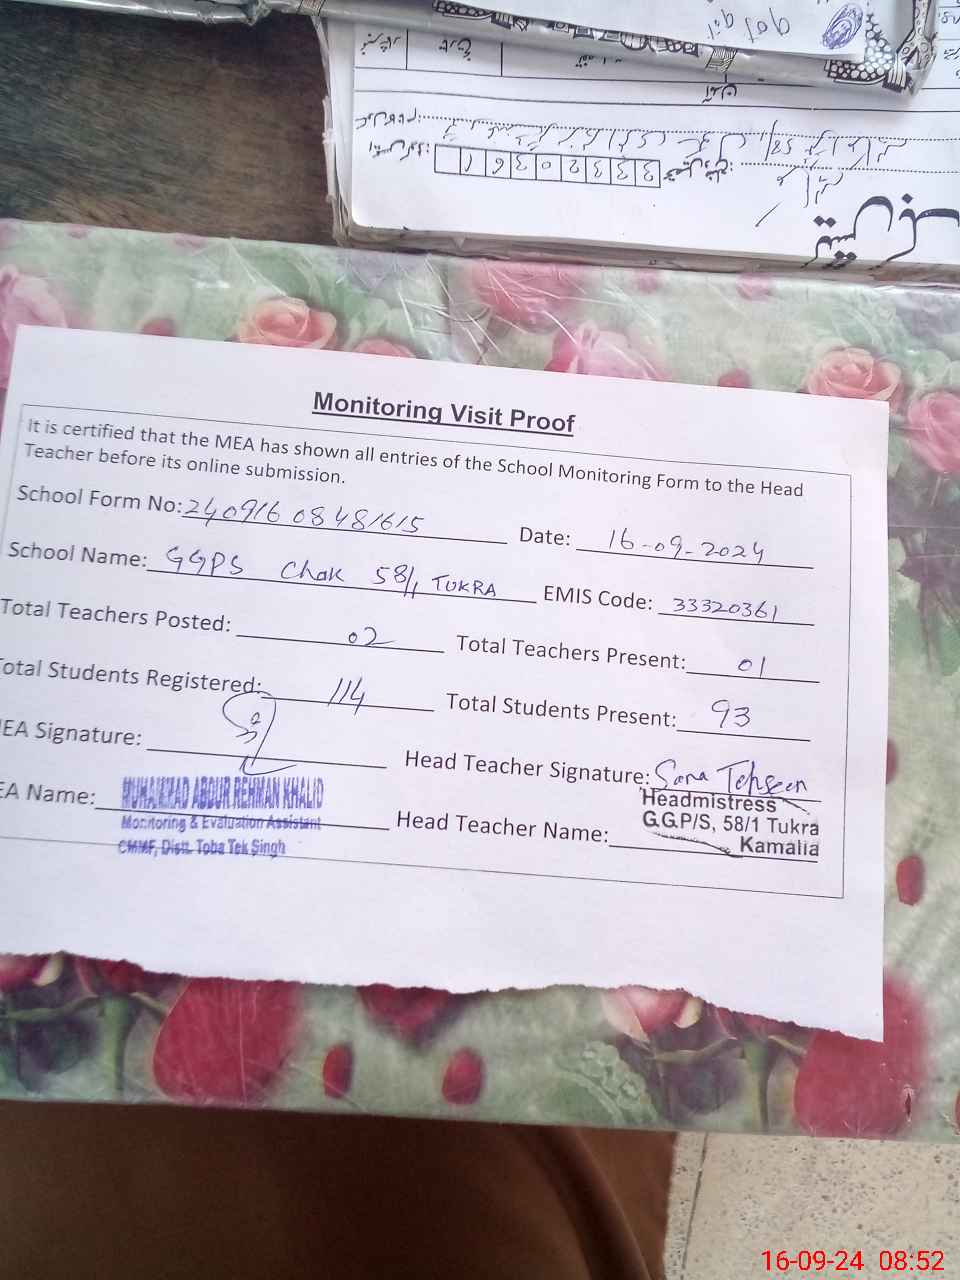 Monitoring Visit Proof
It is certified that the MEA has shown all entries of the School Monitoring Form to the Head
Teacher before its online submission.
School Form No: 240916 08481615 Date: 16-09-2024
School Name: GGPS Chak 58/1 TUKRA EMIS Code: 33320361
Total Teachers Posted: 02 Total Teachers Present: 01
otal Students Registered: 114 Total Students Present: 93
EA Signature: Head Teacher Signature: Sana Tehseen
EA Name: MUHAMMAD ABDUR REHMAN KHALID Head Teacher Name: Headmistress
Monitoring & Evaluation Assistant G.G.P/S, 58/1 Tukra
CMMF, Distt. Toba Tek Singh Kamalia
3 3 3 2 0 3 6 1
16-09-24 08:52